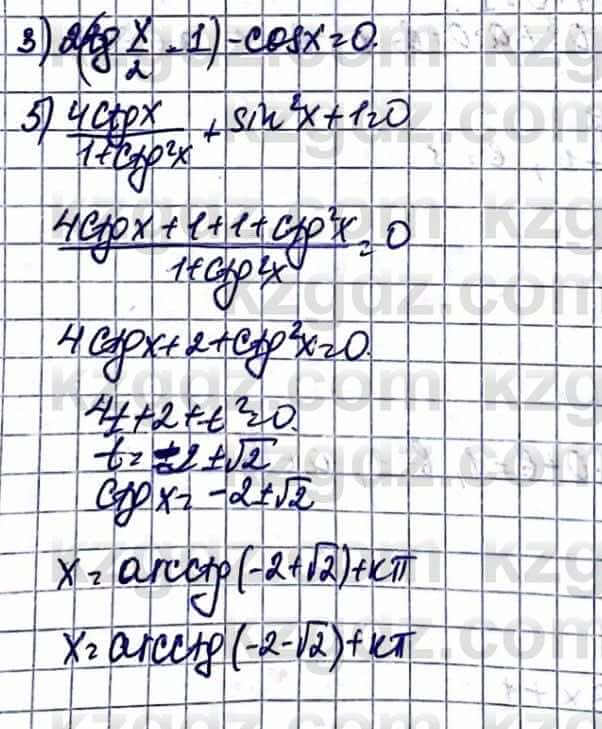 3) 2(tg x/2 - 1) - cosx = 0.
5) 4ctgx/(1+ctg²x) + sin²x + 1 = 0
(4ctgx + 1 + 1 + ctg²x)/(1+ctg²x) = 0
4ctgx + 2 + ctg²x = 0.
4t + 2 + t² = 0.
t = -2 ± √2
ctg x = -2 ± √2
x = arcctg(-2+√2) + kπ
x = arcctg(-2-√2) + kπ